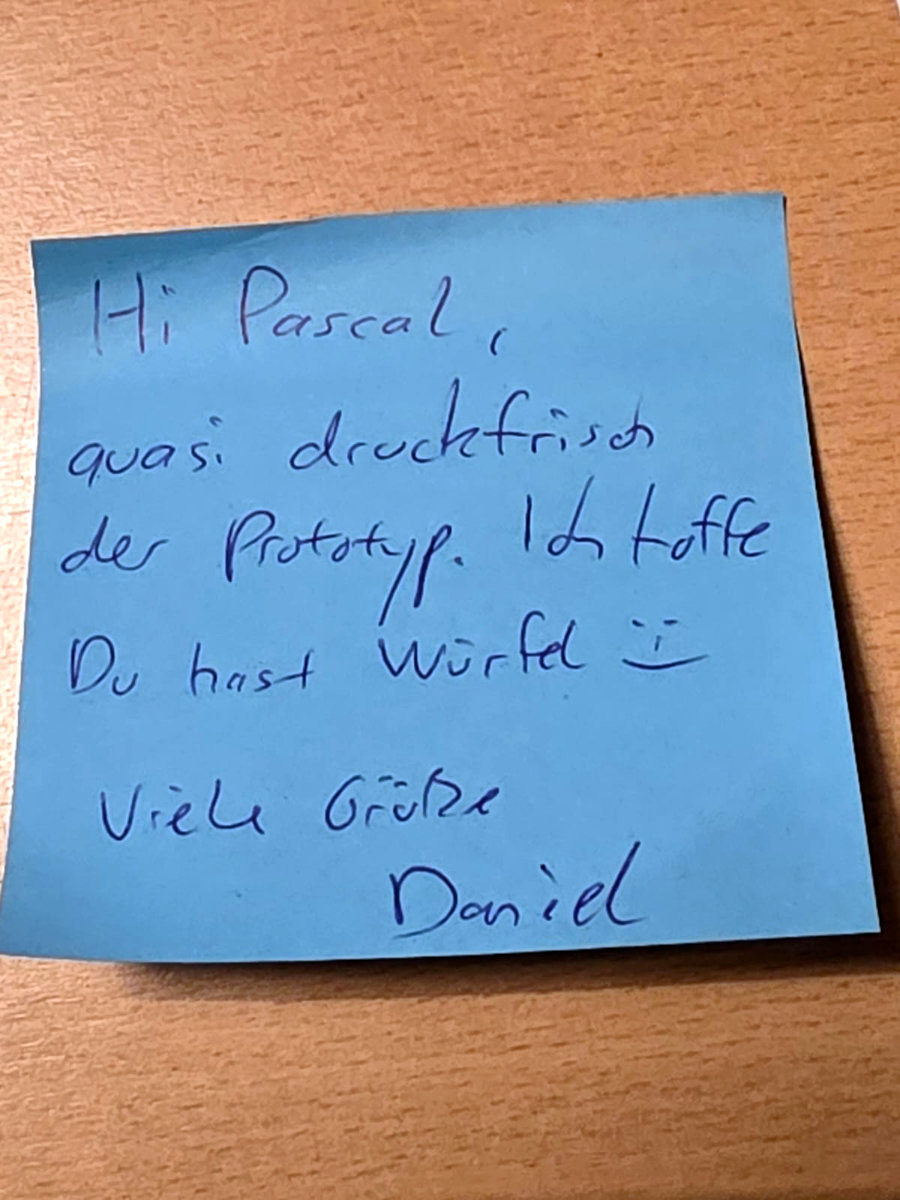 Hi Pascal,
quasi druckfrisch
der Prototyp. Ich hoffe
Du hast Würfel :-)
Viele Grüße
Daniel